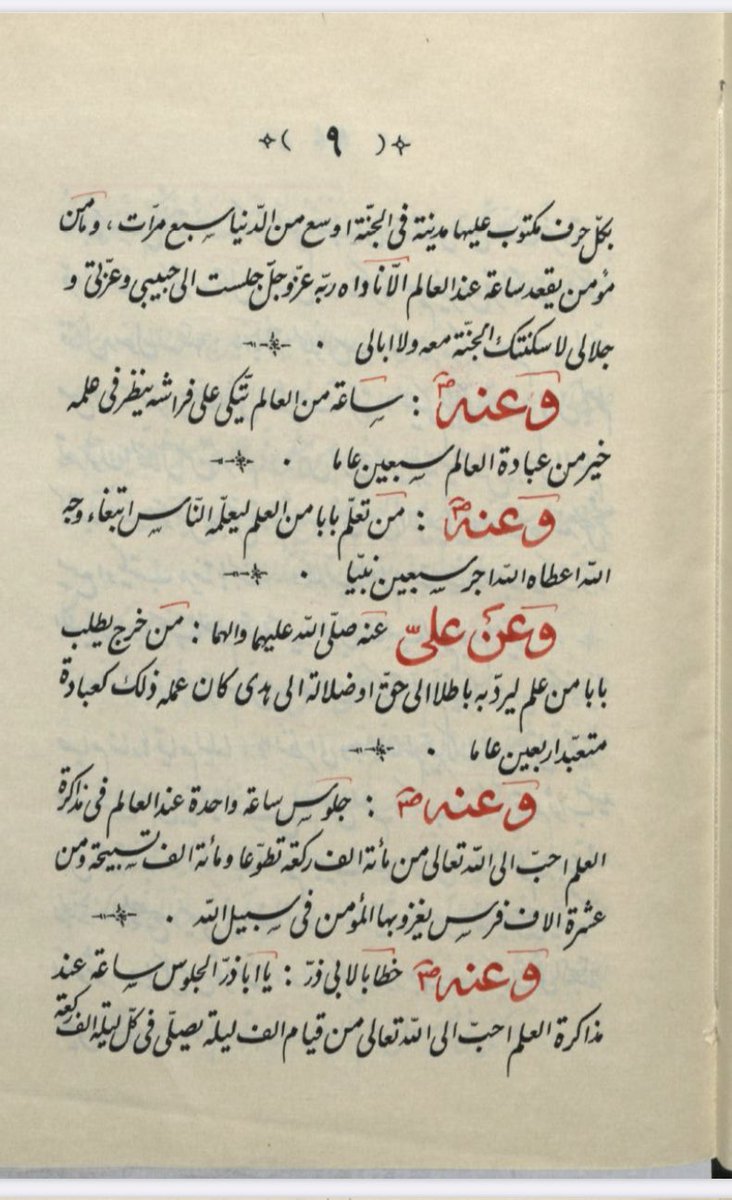 ( ٩ )
بكلّ حرف مكتوب عليها مدينة فى الجنّة اوسع من الدّنيا سبع مرّات ، و مامن
مؤمن يقعد ساعة عند العالم الّا ناداه ربّه عزّ و جلّ جلست الى حبيبى وعزّتى و
جلالى لاسكنتك الجنّة معه ولا ابالى ٠
وَعنه ص : ساعة من العالم يتّكى على فراشه ينظر فى علمه
خير من عبادة العالم سبعين عاما ٠
وَعنه ص : من تعلّم بابا من العلم ليعلّمه النّاس ابتغاء وجه
اللّه اعطاه اللّه اجر سبعين نبيّا ٠
وَعَن علىّ عنه صلّى اللّه عليهما والهما : من خرج يطلب
بابا من علم ليردّ به باطلا الى حقّ او ضلالة الى هدى كان عمله ذلك كعبادة
متعبّد اربعين عاما ٠
وَعنه ص : جلوس ساعة واحدة عند العالم فى مذاكرة
العلم احبّ الى اللّه تعالى من مأئة الف ركعة تطوّعا و مأئة الف تسبيحة و من
عشرة الاف فرس يغزو بها المؤمن فى سبيل اللّه ٠
وَعنه ص خطابا لابى ذرّ : يا اباذرّ الجلوس ساعة عند
مذاكرة العلم احبّ الى اللّه تعالى من قيام الف ليلة يصلّى فى كلّ ليلة الف ركعة